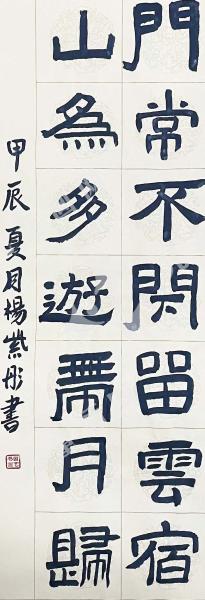 門常不閉留雲宿
山為多遊帶月歸
甲辰夏月楊紫彤書